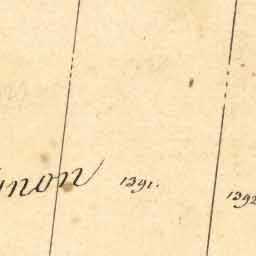 non 1391. 1392